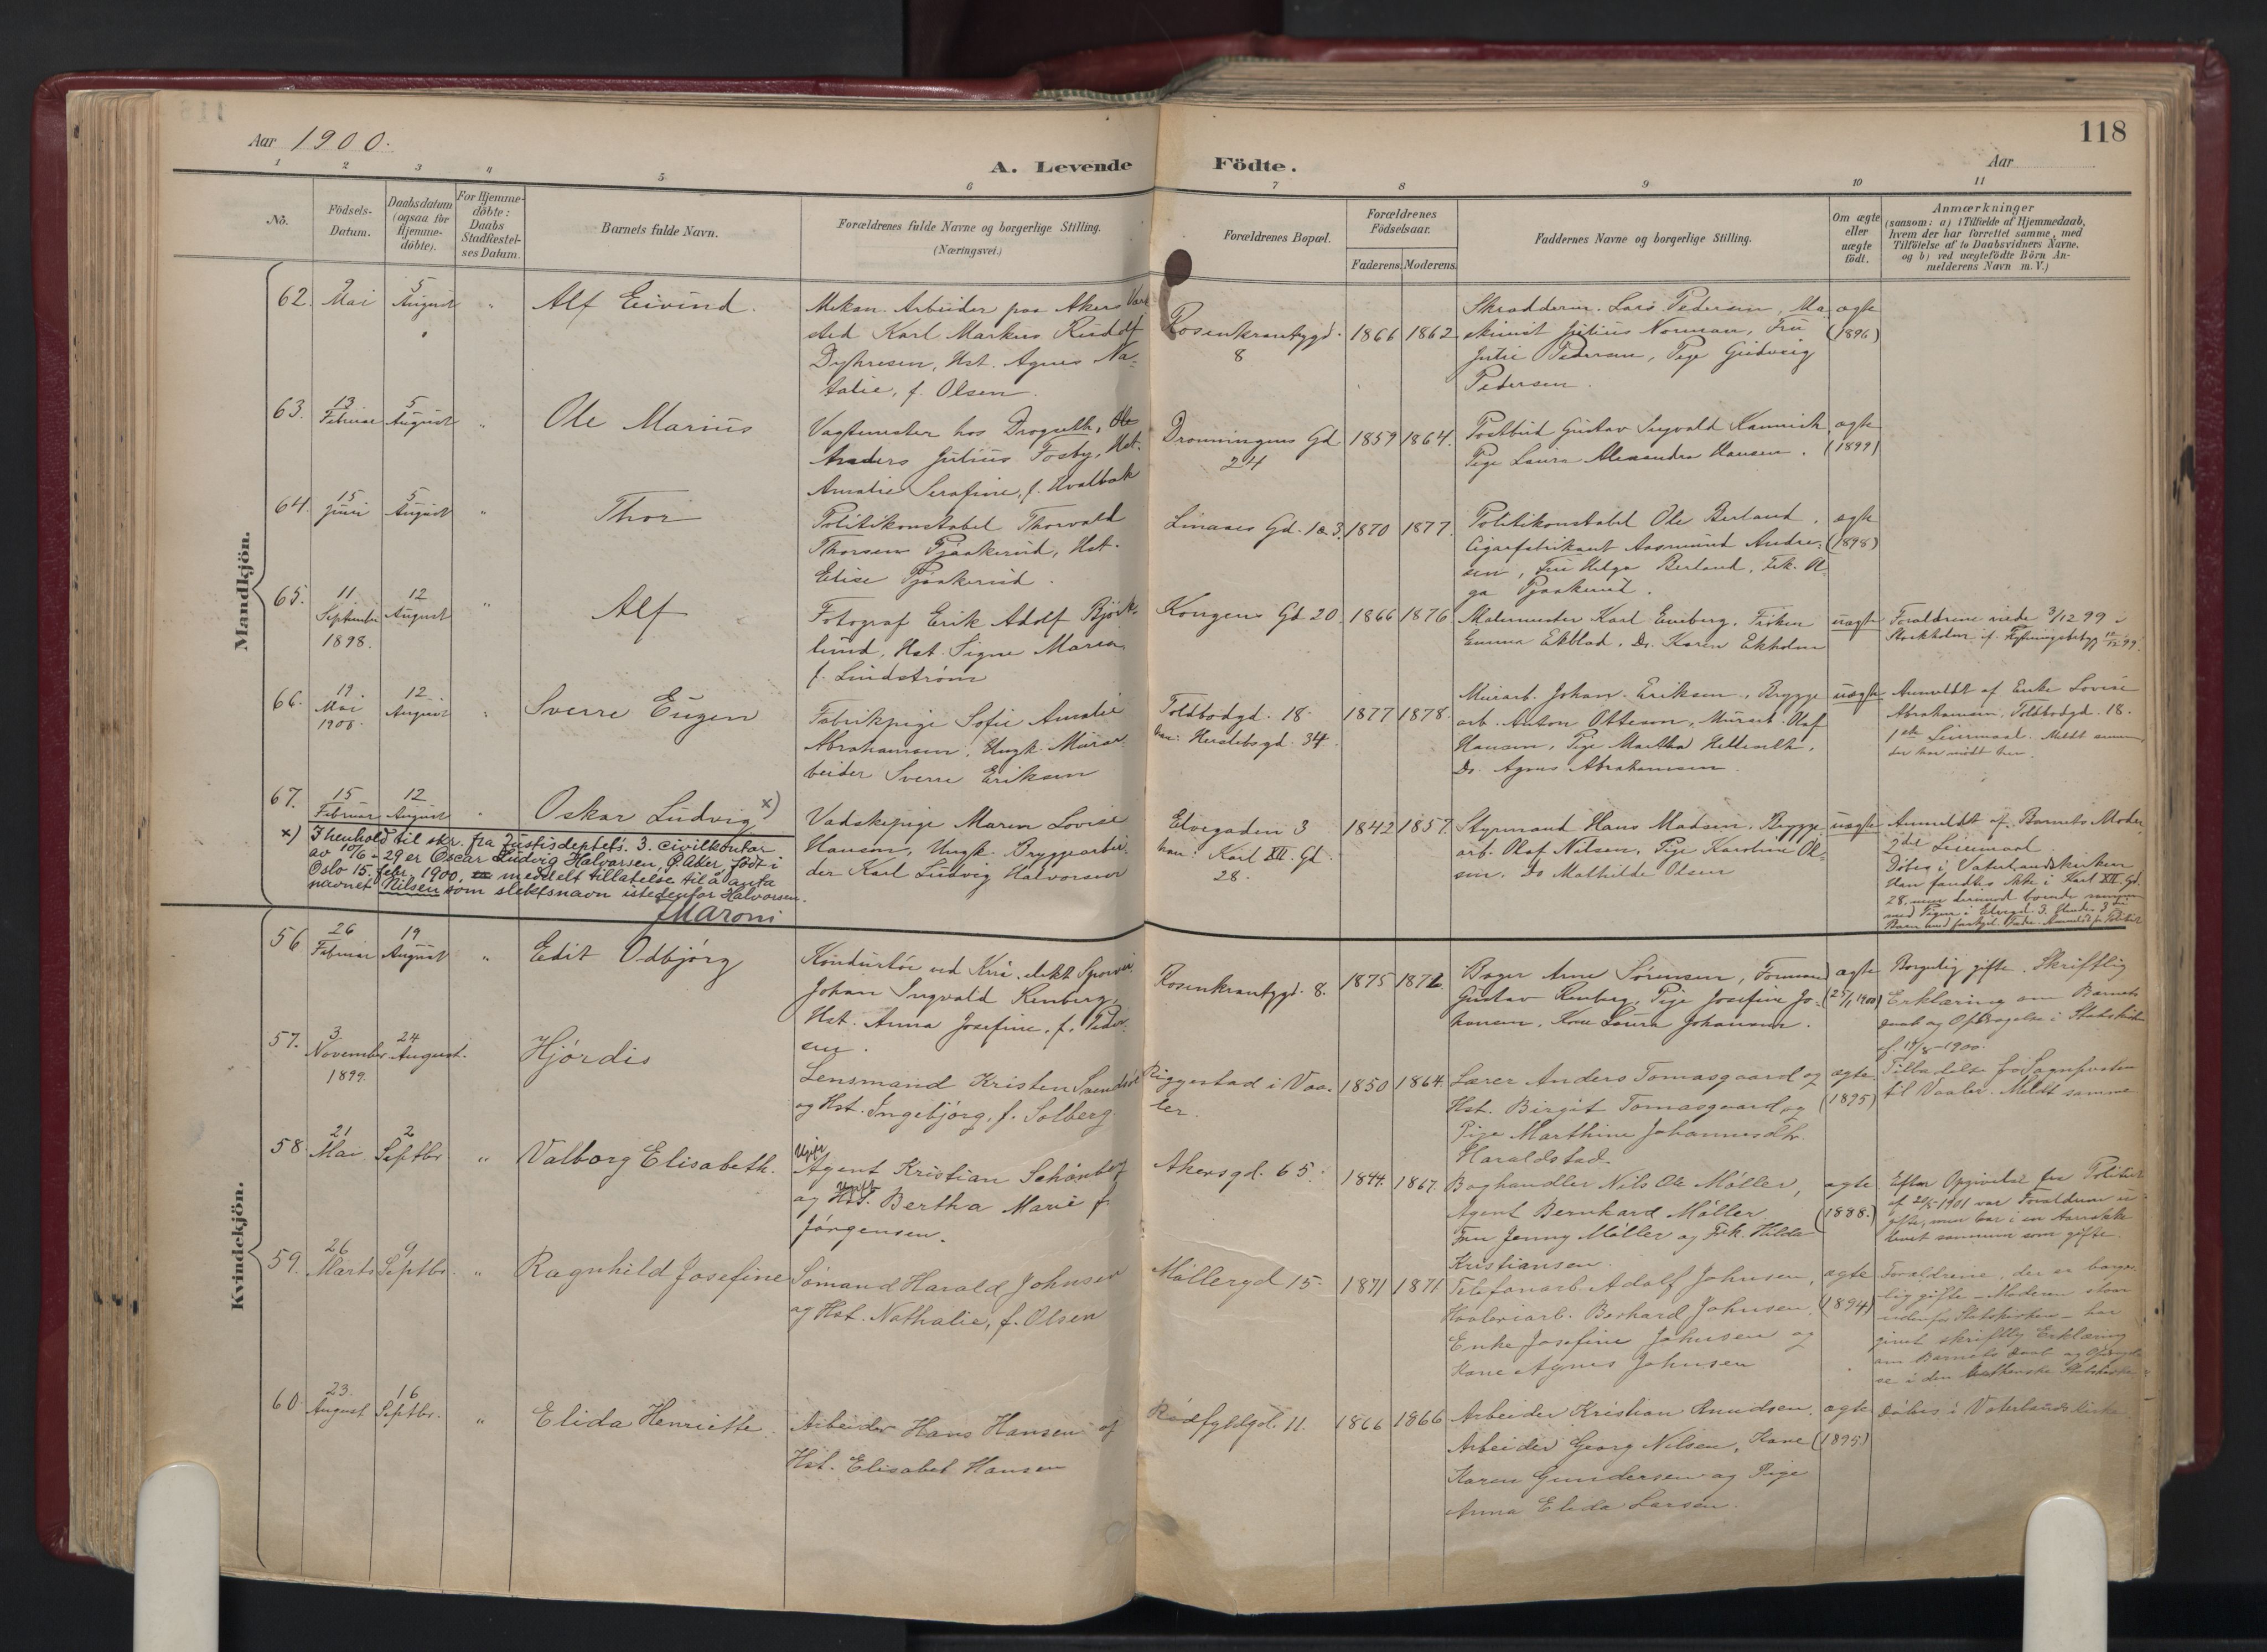 118
Aar 1900.
A. Levende Födte.
Aar
1 2 3 4 5 6 7 8 9 10 11
No.
Födsels-
Datum.
Daabsdatum
(ogsaa for
Hjemme-
döbte).
For Hjemme-
döbte:
Daabs
Stadfæstel-
ses Datum.
Barnets fulde Navn.
Forældrenes fulde Navne og borgerlige Stilling.
(Næringsvei.)
Forældrenes Bopæl.
Forældrenes
Födselsaar.
Faderens. Moderens.
Faddernes Navne og borgerlige Stilling.
Om ægte
eller
uægte
födt.
Anmærkninger
(saasom: a) i Tilfælde af Hjemmedaab,
hvem der har forrettet samme, med
Tilföielse af to Daabsvidners Navne.
og b) ved uægtefödte Börn An-
melderens Navn m. V.)
Mandkjön.
62. 9 Mai 5 August " Alf Eivind.
Mekan. Arbeider paa Akers Værk
sted Karl Markus Rudolf
Dyhresen, Hst. Agnes Na-
talie, f. Olsen.
Rosenkrantzgd.
8
1866 1862
Skrædderm. Lars Pedersen, Ma
skinist Julius Norman, Fru
Julie Pedersen, Pige Gudveig
Pedersen.
ægte
(1896)
63. 13 Februar 5 August " Ole Marius
Vagtmester hos Drogseth, Ole
Anders Julius Fosby, Hst.
Amalie Serafine, f. Hvalbak
Dronningens Gd
24
1859 1864.
Postbud Gustav Ingvald
Pige Laura Alexandra Hansen.
ægte
(1899)
64. 15 Juni 5 August " Thor
Politikonstabel Thorvald
Thorsen Pjaakerud, Hst.
Elise Pjaakerud.
Linaaes Gd. 1 a 3.
1870 1877.
Politikonstabel Ole Berland,
Cigarfabrikant Aasmund Andre-
sen, Fru Helga Berland, Frk. A
ga Pjaakerud.
ægte
(1898)
65. 11 September 1898. 12 August " Alf
Fotograf Erik Adolf Björk-
lund, Hst. Signe Maria
f. Lindström
Kongens Gd 20.
1866 1876
Malermester Karl Eneberg, Fröken
Emma Ekblad, Do. Karin Ekholm
uægte
Forældrene viede 3/12 99 i
Stockholm if. Flytningsbetyg 12/12 99.
66. 19. Mai 1900. 12 August " Sverre Eugen
Fabrikpige Sofie Amalie
Abrahamsen, Ungk. Murar-
beider Sverre Eriksen
Toldbodgd. 18
han: Herslebsgd. 34.
1877 1878.
Murarb. Johan Eriksen, Brygge
arb. Anton Ottesen, Murarb. Olaf
Hansen, Pige Martha
Do. Agnes Abrahamsen.
uægte
Anmeldt af Enke Lovise
Abrahamsen, Toldbodgd. 18.
1ste Leiermaal. Meldt
der har mödt her.
67. 15 Februar 12 August " Oskar Ludvig x)
Vadskepige Maren Lovise
Hansen, Ungk. Bryggearbei-
der Karl Ludvig Halvorsen
Elvegaden 3
han: Karl XII. Gd.
28.
1842 1857.
Styrmand Hans Madsen, Brygge
arb. Olaf Nilsen, Pige Karoline Ol-
sen, Do Mathilde Olsen
uægte
Anmeldt af Barnets Moder
2det Leiermaal.
Döbes i Vaterlandskirken
Han fandtes ikke i Karl XII. Gd.
28, men derimod boende sammen
med Pigen i Elvegd. 3.
x) I henhold til skr. fra Justisdeptets. 3. civilkontor
av 10/6-29 er Oscar Ludvig Halvorsen, Ö. Aker, födt i
Oslo 15. febr. 1900, meddelt tillatelse til å anta
navnet Nilsen som slektsnavn istedenfor Halvorsen.
JMaroni
Kvindekjön.
56 26 Februar 19 August " Edit Odbjörg
Konduktör ved Kria. elekt. Sporvei
Johan Ingvald Renberg,
Hst. Anna Josefine, f. Peder-
sen.
Rosenkrantzgd. 8.
1875 1872.
Bager Arne Sörensen, Formand
Gustav Renberg, Pige Josefine Jo-
hansen, Kone Laura Johansen.
ægte
(25/1 1900)
Borgerlig gifte. Skriftlig
Erklæring om Barnets
Daab og Opdragelse i Statskirken
af 18/8-1900.
57. 3 November 1899. 24 August. Hjördis
Lensmand Kristen
og Hst. Ingebjörg, f. Solberg
Riggestad i Vaa-
ler.
1850 1864.
Lærer Anders Tomasgaard og
Hst. Birgit Tomasgaard og
Pige Marthine Johannesdtr.
Haraldstad.
ægte
(1895)
Tilladelse fra Sognepresten
til Vaaler. Meldt samme
58 21 Mai 2 Septbr " Valborg Elisabeth.
Ugift
Agent Kristian Schönberg
og Hst. Ugift Bertha Marie f.
Jörgensen.
Akersgd. 65.
1844. 1867.
Boghandler Nils Ole Möller,
Agent Bernhard Möller
Fru Jenny Möller og Frk. Hilda
Kristiansen.
ægte
(1888.)
Efter Opgivelse fra Politiet
af 21/5-1901 var Forældrene u
gifte, men har i en Aarrække
levet sammen som gifte.
59. 26 Marts 9 Septbr. " Ragnhild Josefine
Sömand Harald Johnsen
og Hst. Nathalie, f. Olsen
Möllergd 15
1871 1871
Telefonarb. Adolf Johnsen,
Bernhard Johnsen,
Enke Josefine Johnsen og
Kone Agnes Johnsen
ægte
(1894)
Forældrene, der er borger-
lig gifte – Moderen staar
udenfor Statskirken – har
givet skriftlig Erklæring
om Barnets Daab og Opdragel-
se i den lutherske Statskirke
60 23. August 16 Septbr. " Elida Henriette.
Arbeider Hans Hansen og
Hst. Elisabet Hansen
Rödfyldgd. 11.
1866 1866
Arbeider Kristian Knudsen,
Arbeider Georg Nilsen, Kone
Karen Gundersen og Pige
Anna Elida Larsen.
ægte
(1895)
Döbes i Vaterlandskirke